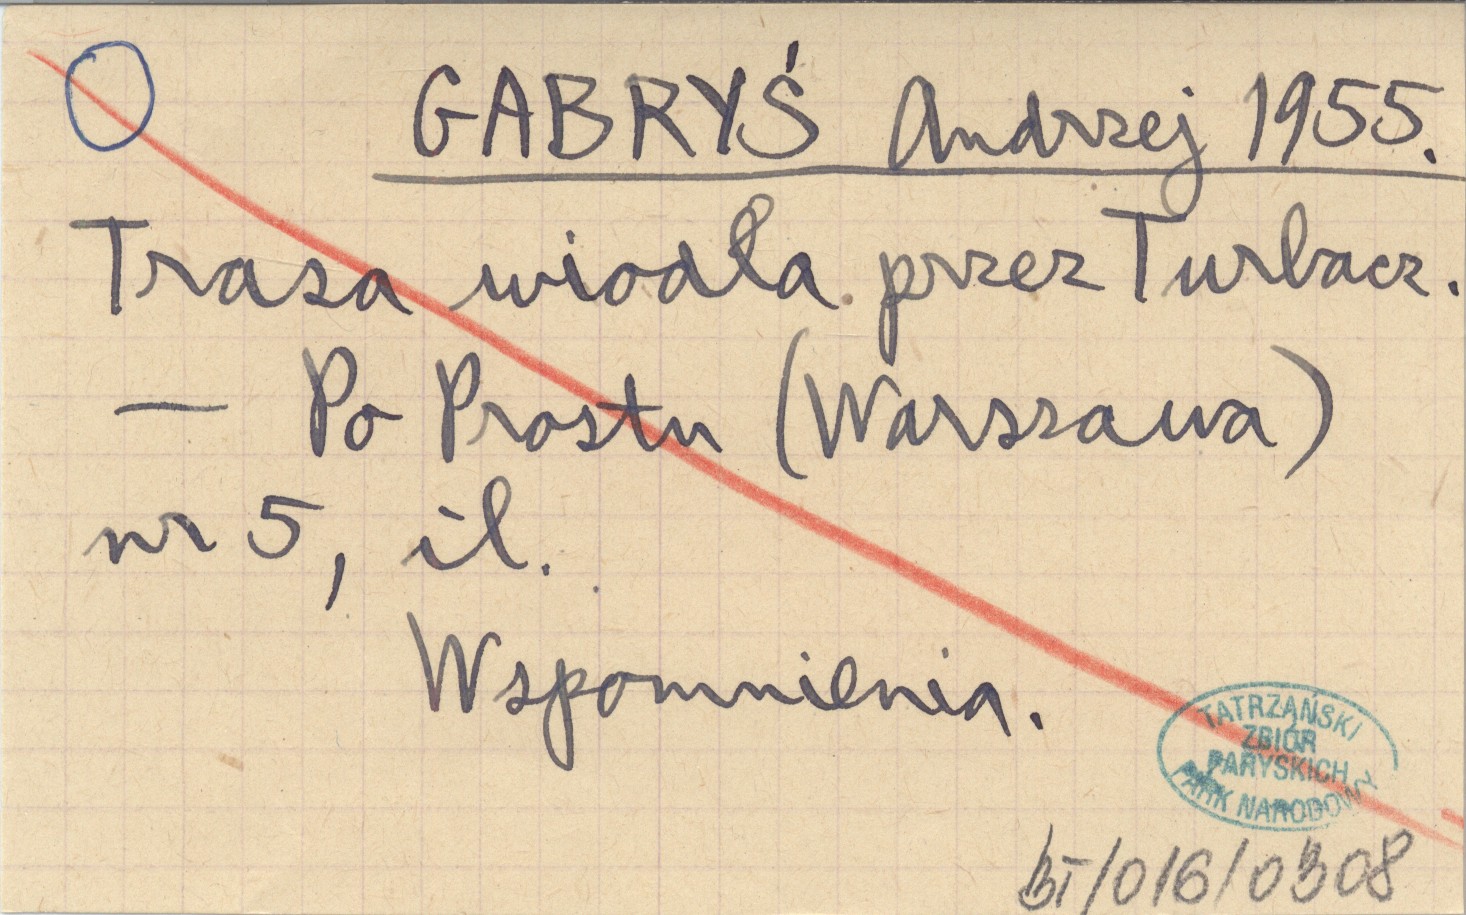 GABRYŚ Andrzej 1955.
Trasa wiodła przez Turbacz.
— Po Prostu (Warszawa)
nr 5, il.
Wspomnienia.
TATRZAŃSKI
ZBIÓR
PARYSKICH
PARK NARODOWY
BT/016/0308